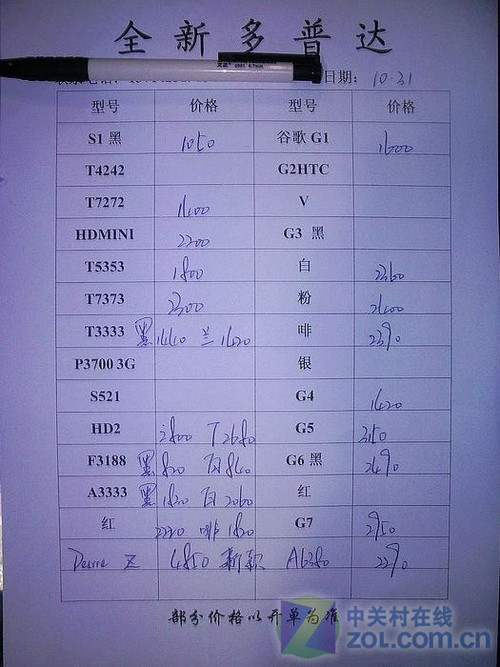 全新多普达
日期: 10-31
型号 价格 型号 价格
S1 黑 1050 谷歌 G1 1600
T4242 G2HTC
T7272 1400 V
HDMINI 2200 G3 黑
T5353 1800 白 2360
T7373 2300 粉 2400
T3333 黑 1440 兰 1420 啡 2390
P3700 3G 银
S521 G4 1420
HD2 2800 T 2680 G5 3150
F3188 黑 820 白 840 G6 黑 2490
A3333 黑 1830 白 2060 红
红 2220 啡 1820 G7 2950
Desire Z 4850 新款 A6380 2290
部分价格以开单为准
中关村在线
ZOL.com.cn